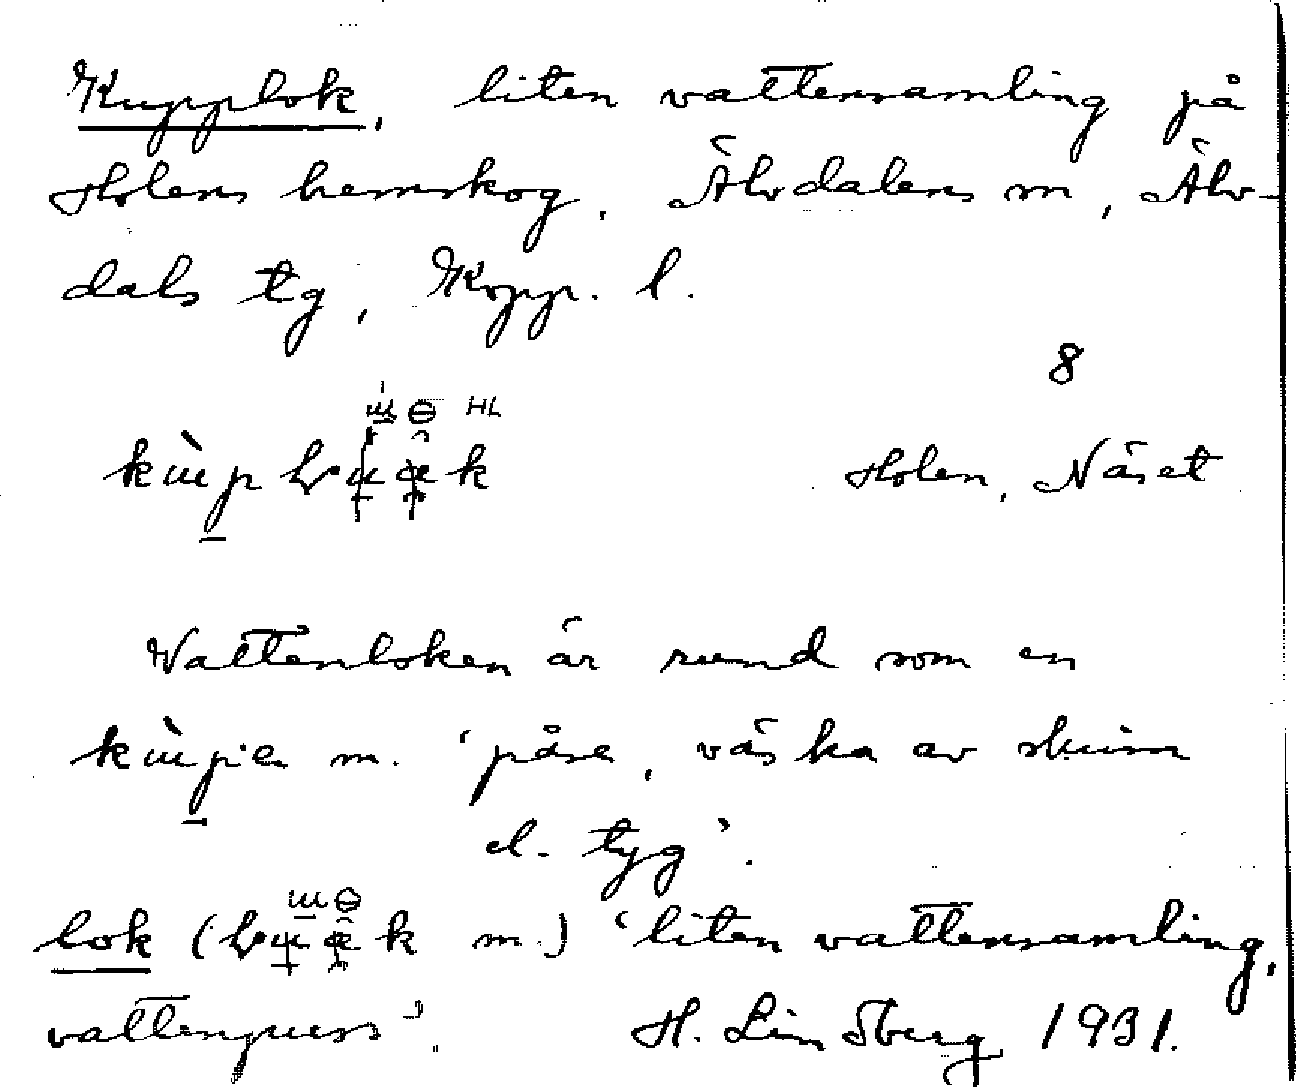 Kupplok, liten vattensamling på
Holens hemskog, Älvdalens sn, Älv-
dals tg, Kopp. l.
8
Holen, Näset
Vattenloken är rund som en
m. 'påse, väska av skinn
el. tyg'.
lok ( m.) 'liten vattensamling,
vattenpuss'. H. Lindberg 1931.